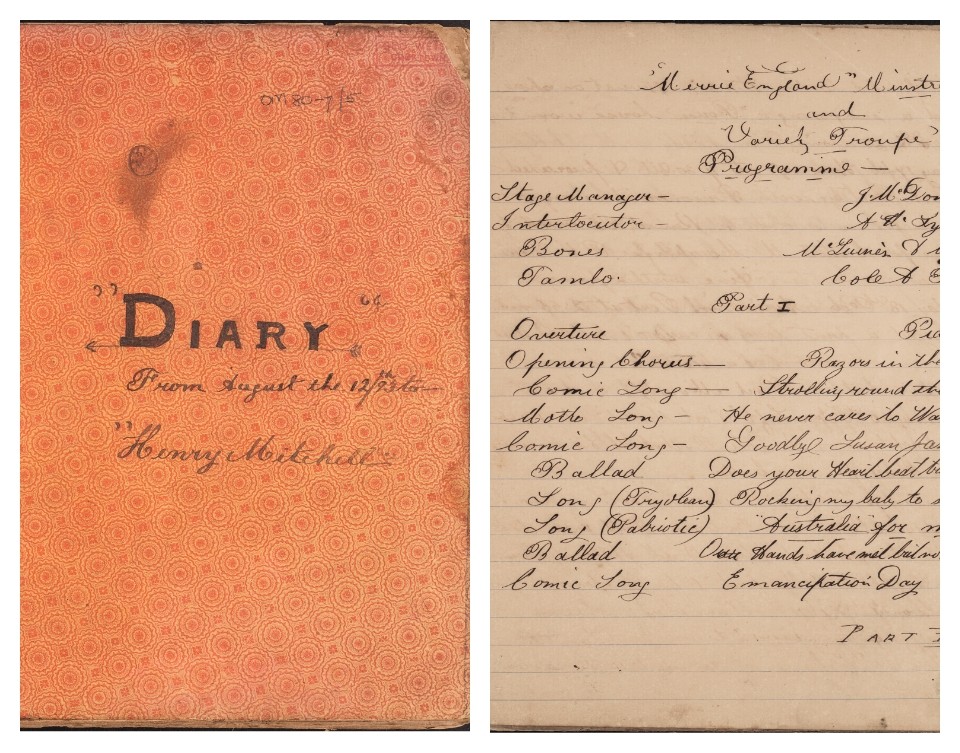 OM80-7/5
"DIARY"
From August the 12th/93 to
"Henry Mitchell"
"Merrie England" Minstre
and
Variety Troupe
Programme —
Stage Manager — J. McDon
Interlocutor — A
Bones
Tambo. Cole A
Part I
Overture Pia
Opening Chorus — Razors in the
Comic Song — Strolling round the
Motto Song — He never cares to Wa
Comic Song — "Goodbye Susan Ja
Ballad Does your Heart beat
Song (Tryolean) Rocking my baby to s
Song (Patriotic) "Australia" for m
Ballad Our Hands have met but no
Comic Song Emancipation Day
PART I